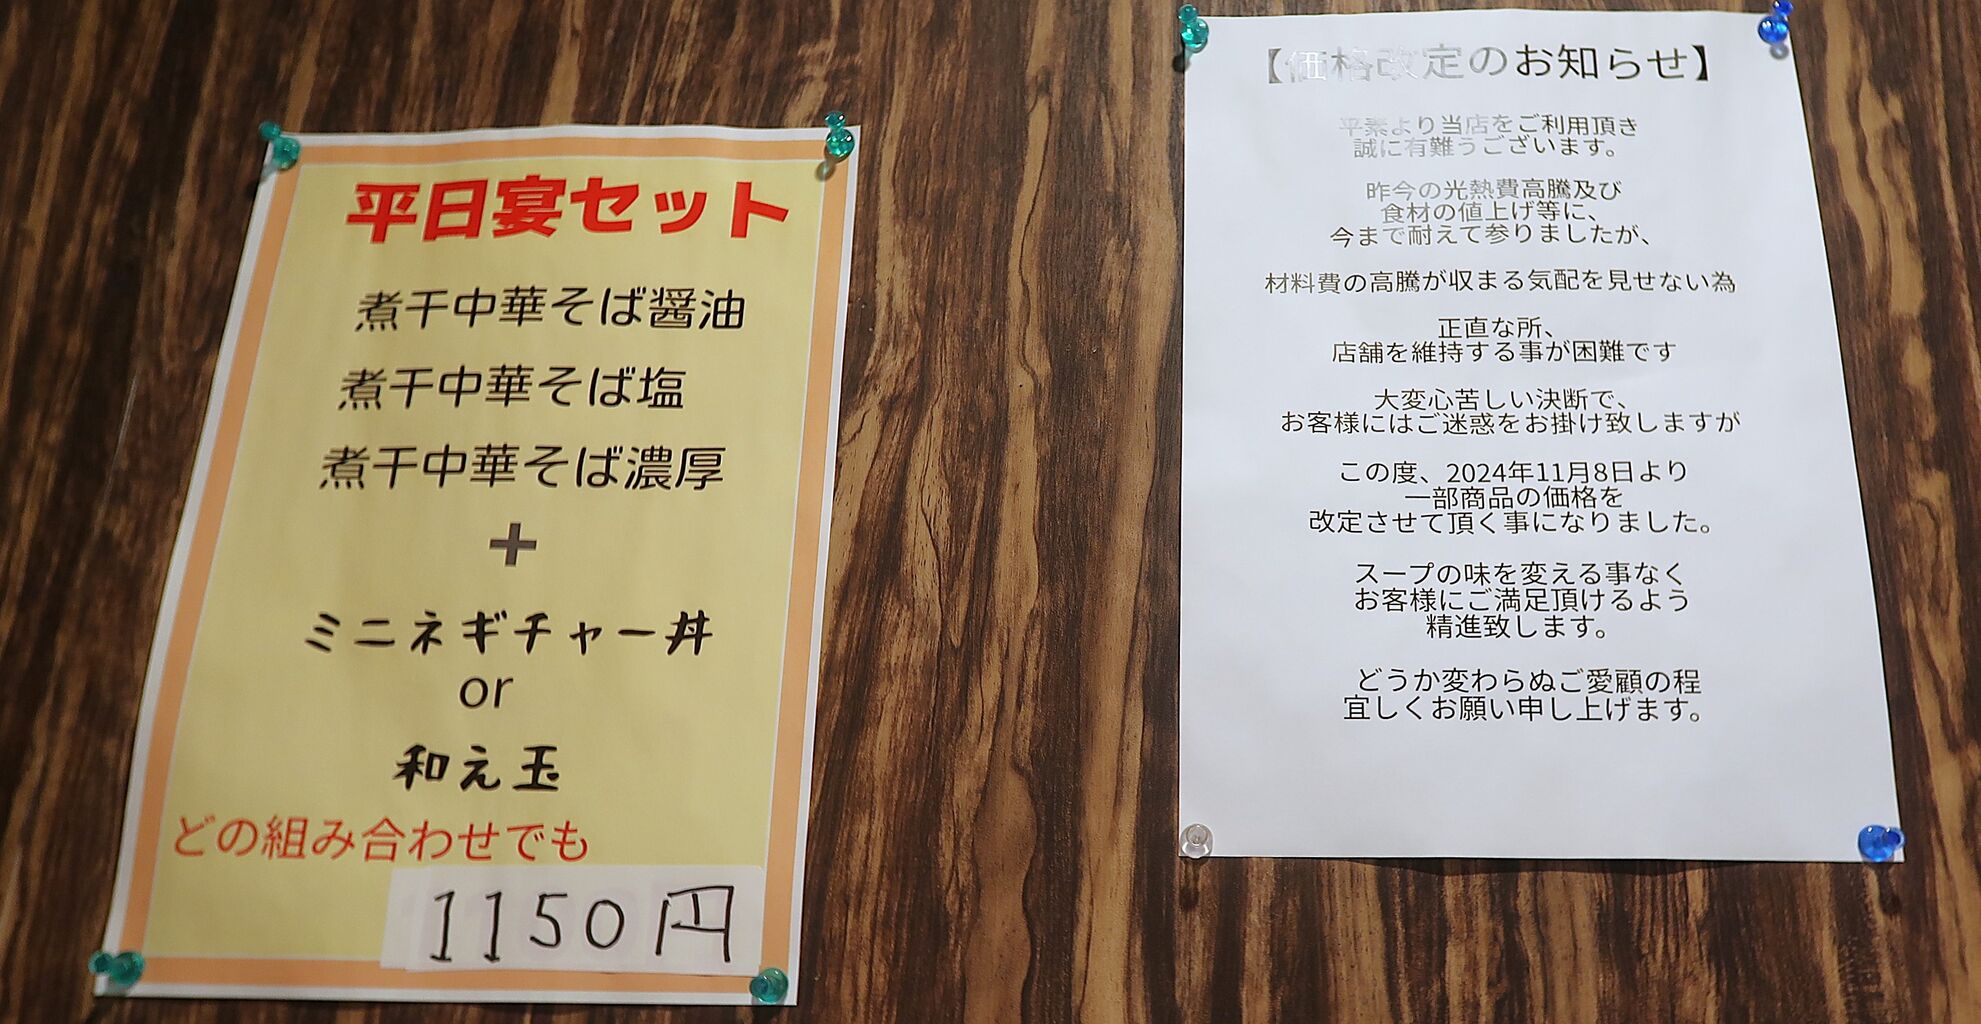 平日宴セット
煮干中華そば醤油
煮干中華そば塩
煮干中華そば濃厚
+
ミニネギチャー丼
or
和え玉
どの組み合わせでも
1150円
【価格改定のお知らせ】
平素より当店をご利用頂き
誠に有難うございます。
昨今の光熱費高騰及び
食材の値上げ等に、
今まで耐えて参りましたが、
材料費の高騰が収まる気配を見せない為
正直な所、
店舗を維持する事が困難です
大変心苦しい決断で、
お客様にはご迷惑をお掛け致しますが
この度、2024年11月8日より
一部商品の価格を
改定させて頂く事になりました。
スープの味を変える事なく
お客様にご満足頂けるよう
精進致します。
どうか変わらぬご愛顧の程
宜しくお願い申し上げます。